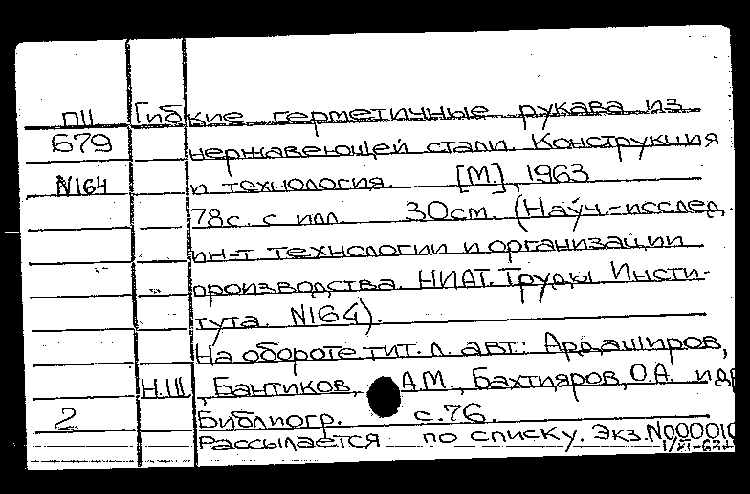 ПII Гибкие герметичные рукава из
679 нержавеющей стали. Конструкция
N164 и технология. [М], 1963
78с. с илл. 30см. (Науч.-исслед.
ин-т технологии и организации
производства. НИАТ. Труды Инсти-
тута. N164).
На обороте тит. л. авт.: Ардаширов,
Н.Ш., Бантиков, А.М., Бахтияров, О.А. и др
2 Библиогр. с.76.
Рассылается по списку. Экз. N000010